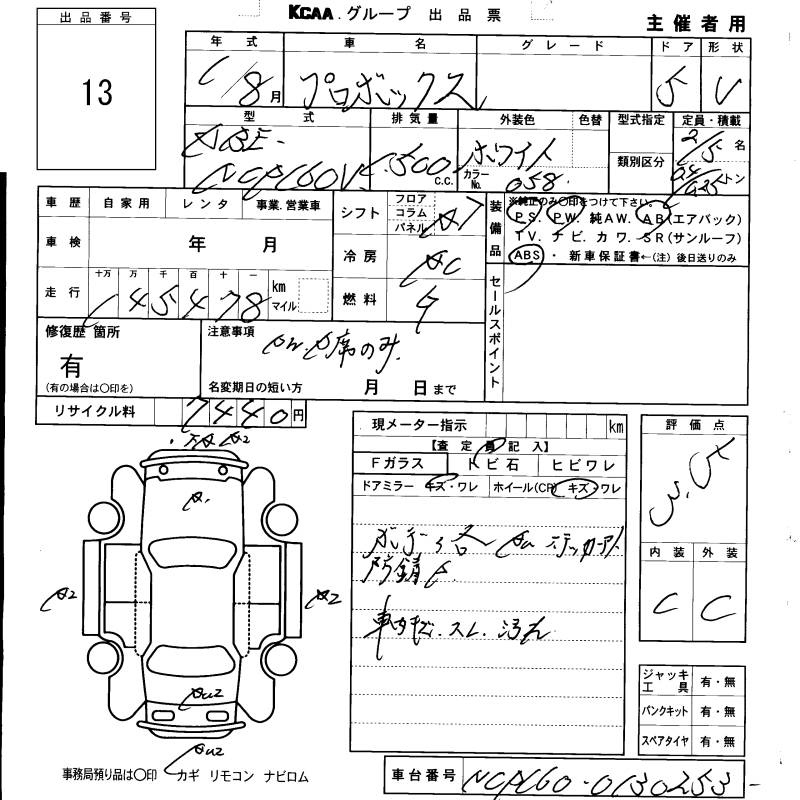 KCAA.グループ 出品票
主催者用
出品番号
13
年式 車名 グレード ドア 形状
8月 プロボックス 5 V
型式 排気量 外装色 色替 型式指定 定員・積載
DBE-
NCP160V 1500 c.c. ホワイト カラーNo. 058 類別区分 2/5名
トン
車歴 自家用 レンタ 事業.営業車
車検 年 月
走行 十万 万 千 百 十 一
145478 km マイル
シフト フロア コラム パネル AT
冷房 AC
燃料 ガ
装備品
※純正のみ〇印をつけて下さい。
PS. PW. 純AW. AB(エアバック)
TV. ナビ. カワ. SR(サンルーフ)
ABS ・ 新車保証書←(注) 後日送りのみ
セールスポイント
修復歴 箇所
有
(有の場合は〇印を)
注意事項
PW.P席のみ.
名変期日の短い方 月 日まで
リサイクル料 7440円
現メーター指示 km
【査定員記入】
Fガラス トビ石 ヒビワレ
ドアミラー キズ・ワレ ホイール(CP) キズ・ワレ
ボデー
防錆
車内 スレ 汚れ
A2
A2
A2
AU2
AU2
評価点
3.5
内装 外装
C C
ジャッキ工具 有・無
パンクキット 有・無
スペアタイヤ 有・無
事務局預り品は〇印 カギ リモコン ナビロム
車台番号 NCP160-0130253